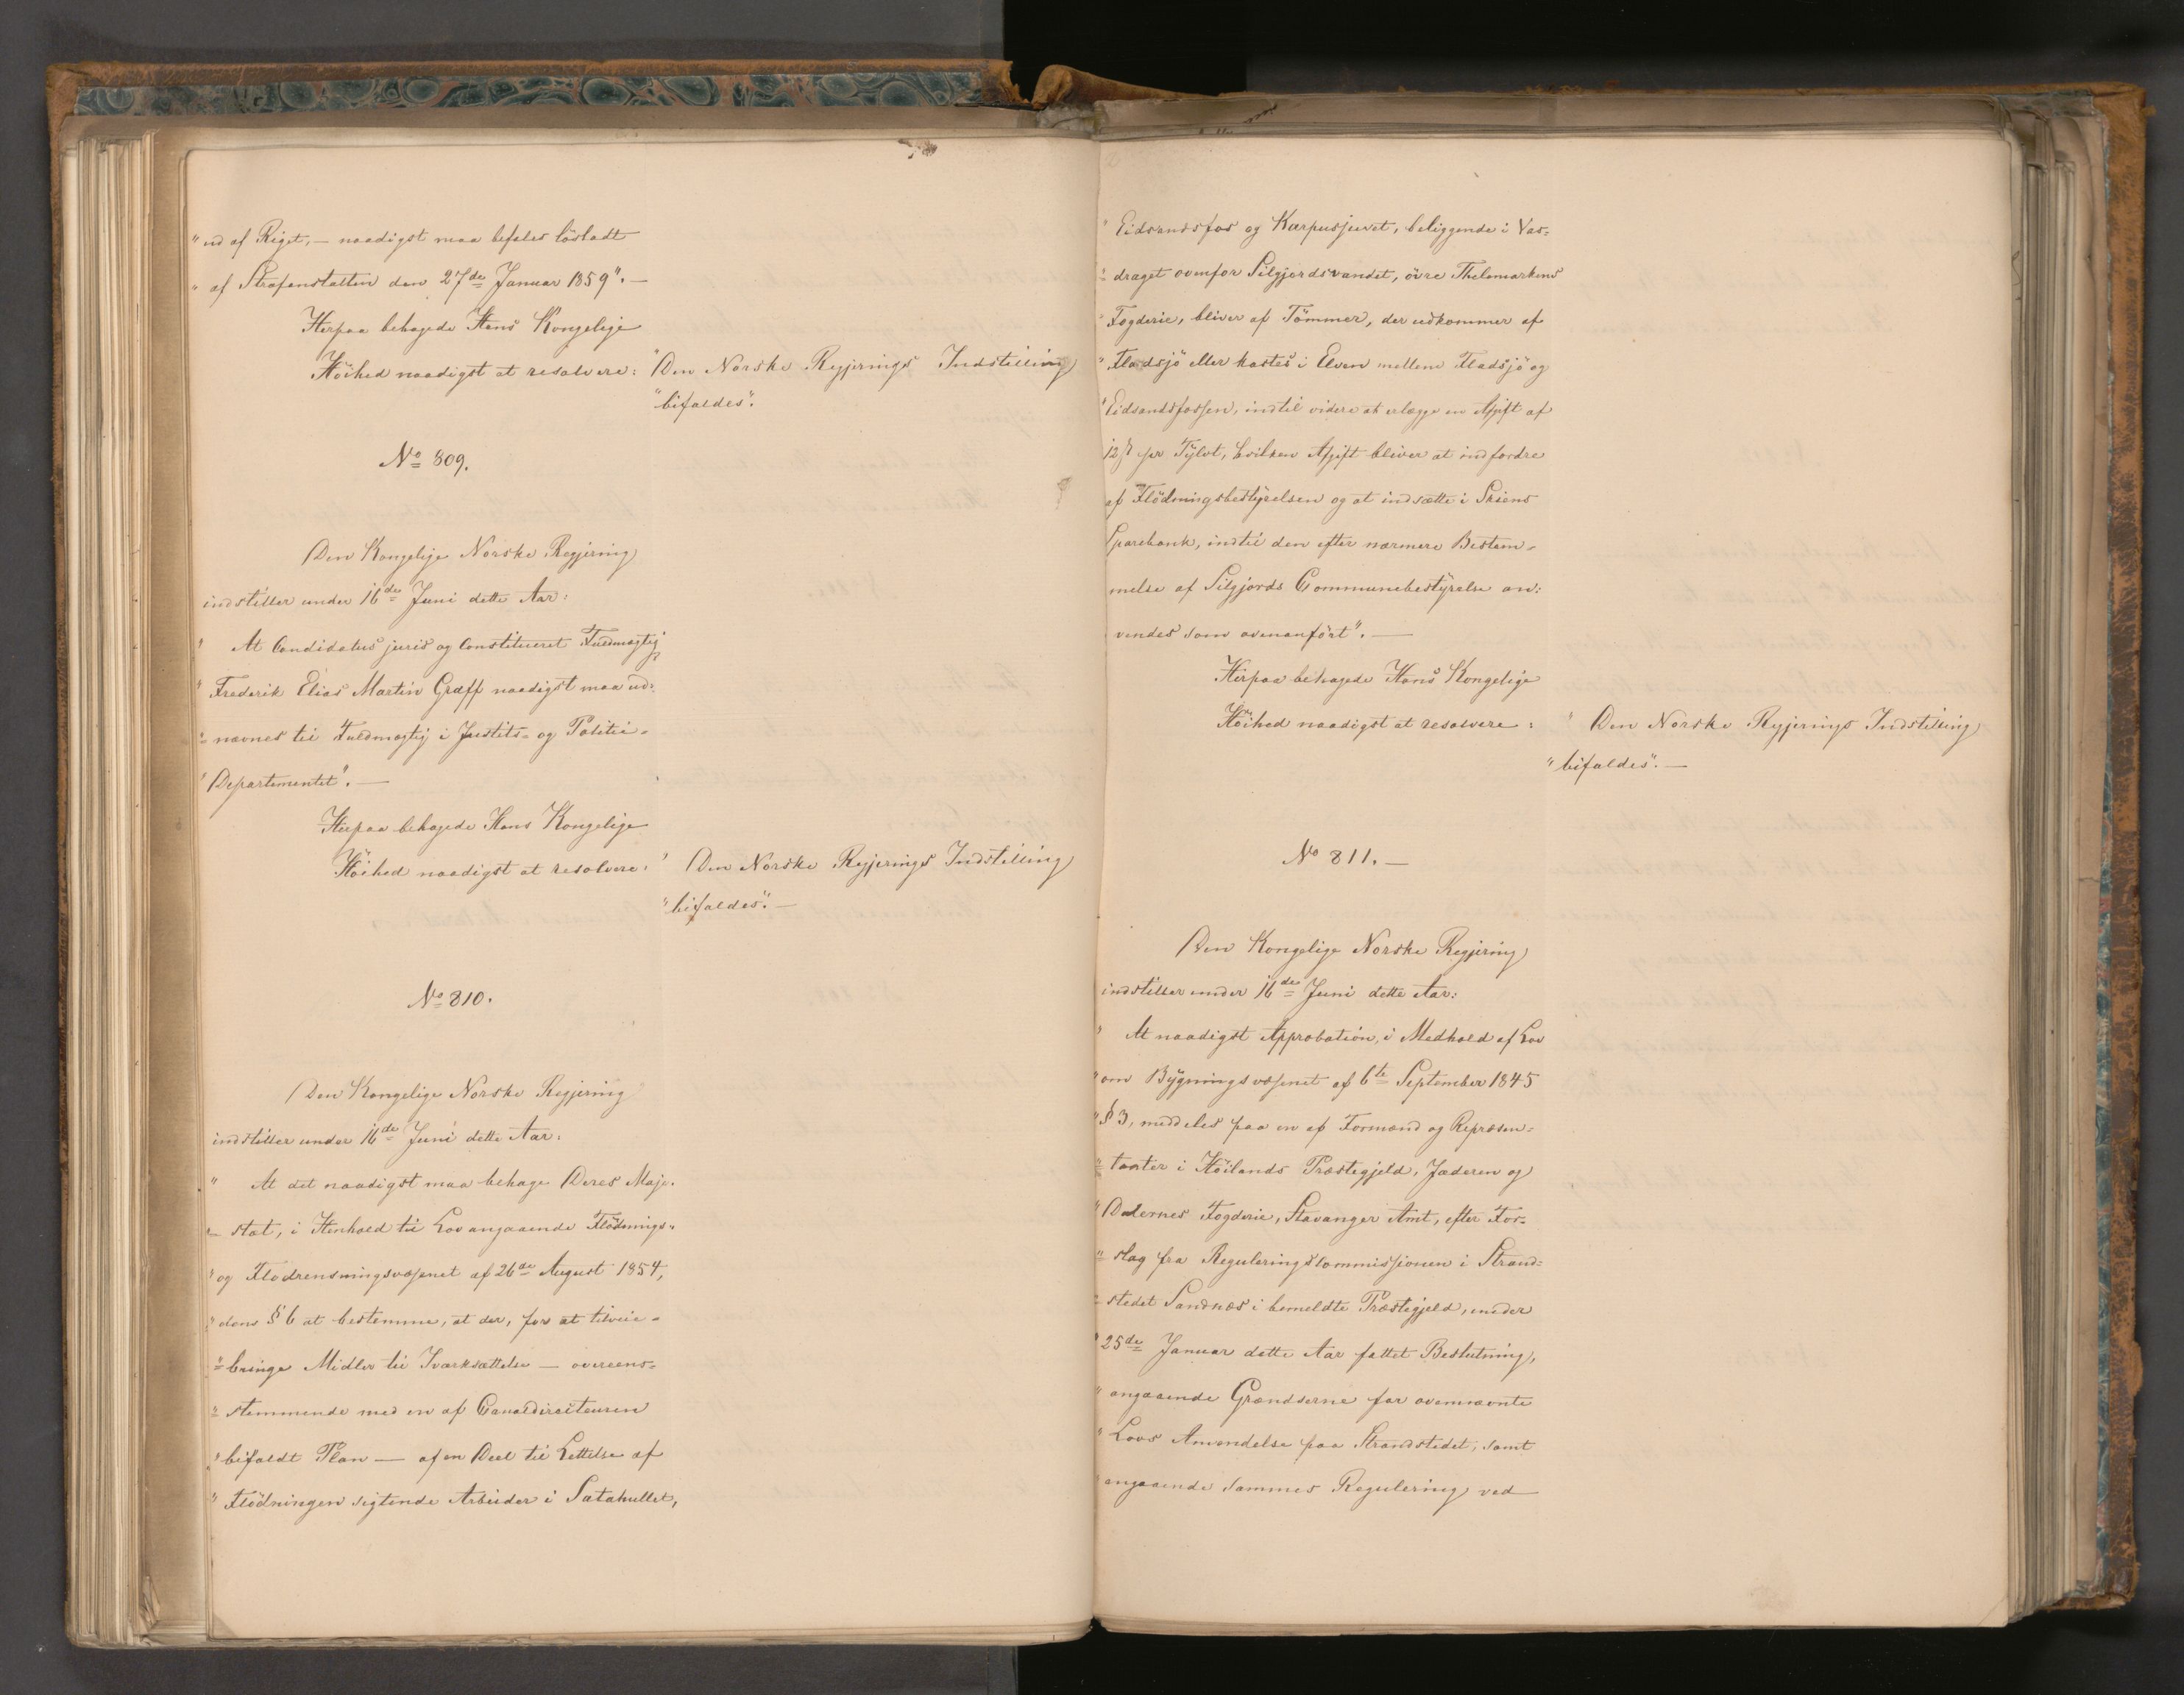 "ud af Riget, — naadigst maa befales lösladt
"af Strafanstalten den 27de Januar 1859". —
Herpaa behagede Hans Kongelige
Höihed naadigst at resolvere:
"Den Norske Regjerings Indstilling
"bifaldes".
No 809.
Den Kongelige Norske Regjering
indstiller under 16de Juni dette Aar:
" At Candidatus juris og Constitueret Fuldmægtig
"Frederik Elias Martin Græff naadigst maa ud-
"nævnes til Fuldmægtig i Justits- og Politie-
"Departementet". —
Herpaa behagede Hans Kongelige
Höihed naadigst at resolvere:
" Den Norske Regjerings Indstilling
"bifaldes". —
No 810.
Den Kongelige Norske Regjering
indstiller under 16de Juni dette Aar:
" At det naadigst maa behage Deres Maje-
"stæt, i Henhold til Lov angaaende Flödnings-
"og Flodrensningsvæsenet af 26de August 1854,
"dens § 6 at bestemme, at der, for at tilveie-
"bringe Midler til Iværksættelse — overeens-
"stemmende med en af Canaldirecteuren
"bifaldt Plan — af en Deel til Lettelse af
"Flödningen sigtende Arbeider i Satahullet,
"Eidsandsfos og Karpusjuvet, beliggende i Vas-
"draget ovenfor Silgjordsvandet, övre Thelemarkens
"Fogderie, bliver af Tömmer, der udkommer af
"Fladsjö eller kastes i Elven mellem Fladsjö og
"Eidsandsfossen, indtil videre at erlægge en Afgift af
12 ß per Tylvt, hvilken Afgift bliver at indfordre
af Flödningsbestyrelsen og at indsætte i Skiens
Sparebank, indtil den efter nærmere Bestem-
melse af Silgjords Communebestyrelse an-
vendes som ovenanfört". —
Herpaa behagede Hans Kongelige
Höihed naadigst at resolvere:
" Den Norske Regjerings Indstilling
"bifaldes". —
No 811. —
Den Kongelige Norske Regjering
indstiller under 16de Juni dette Aar:
" At naadigst Approbation, i Medhold af Lov
"om Bygningsvæsenet af 6te September 1845
"§ 3, meddeles paa en af Formænd og Repræsen-
"tanter i Höilands Præstegjeld, Jæderen og
"Dalernes Fogderie, Stavanger Amt, efter For-
"slag fra Reguleringscommissionen i Strand-
"stedet Sandnæs i bemeldte Præstegjeld, under
"25de Januar dette Aar fattet Beslutning,
"angaaende Grændserne for ovennævnte
"Lovs Anvendelse paa Strandstedet, samt
"angaaende sammes Regulering ved